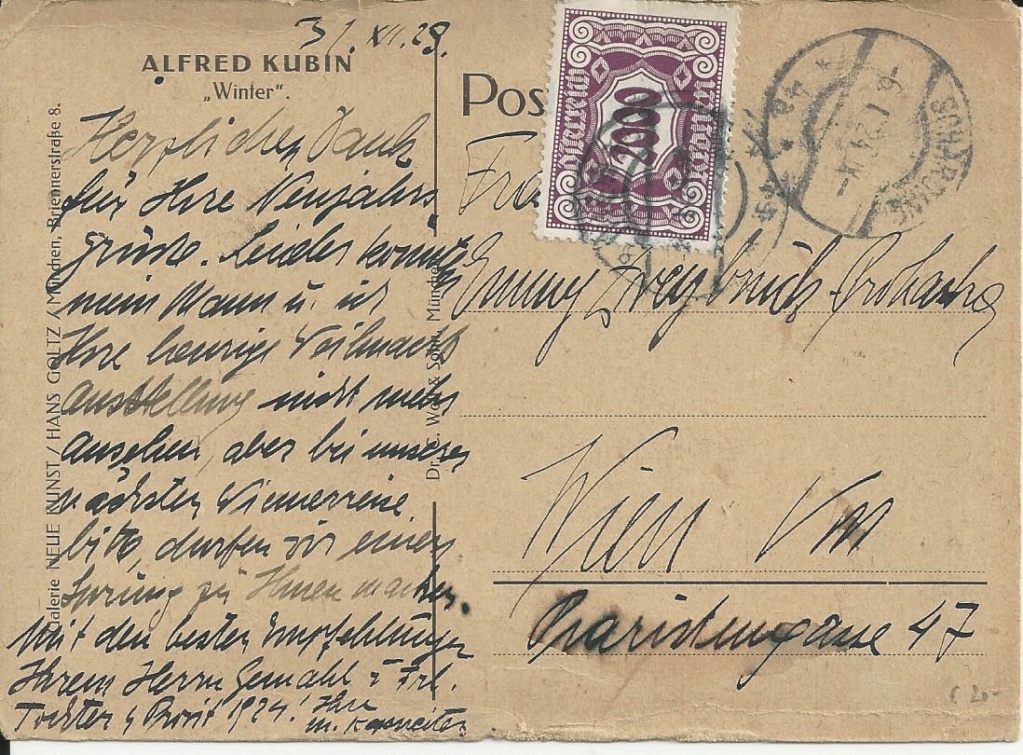 31. XII. 23.
ALFRED KUBIN
„Winter“.
Herzlichen Dank
für Ihre Neujahrs
grüße. Leider konnte
mein Mann u. ich
Ihre heurige Weihnachts
ausstellung nicht mehr
ansehen, aber bei unserer
nächsten Wienerreise
bitte, dürfen wir einen
Sprung zu Ihnen machen.
Mit den besten Empfehlungen
Ihrem Herrn Gemahl u Frl.
Tochter Prosit 1924! Ihre
m.
Galerie NEUE KUNST / HANS GOLTZ / München, Briennerstraße 8.
Dr. C. Wolf & Sohn, München
Pos
Österreich
2000
Kronen
SCHÄRDING
Emmy Zweybrück-Prohaska
Wien VIII
Piaristengasse 47